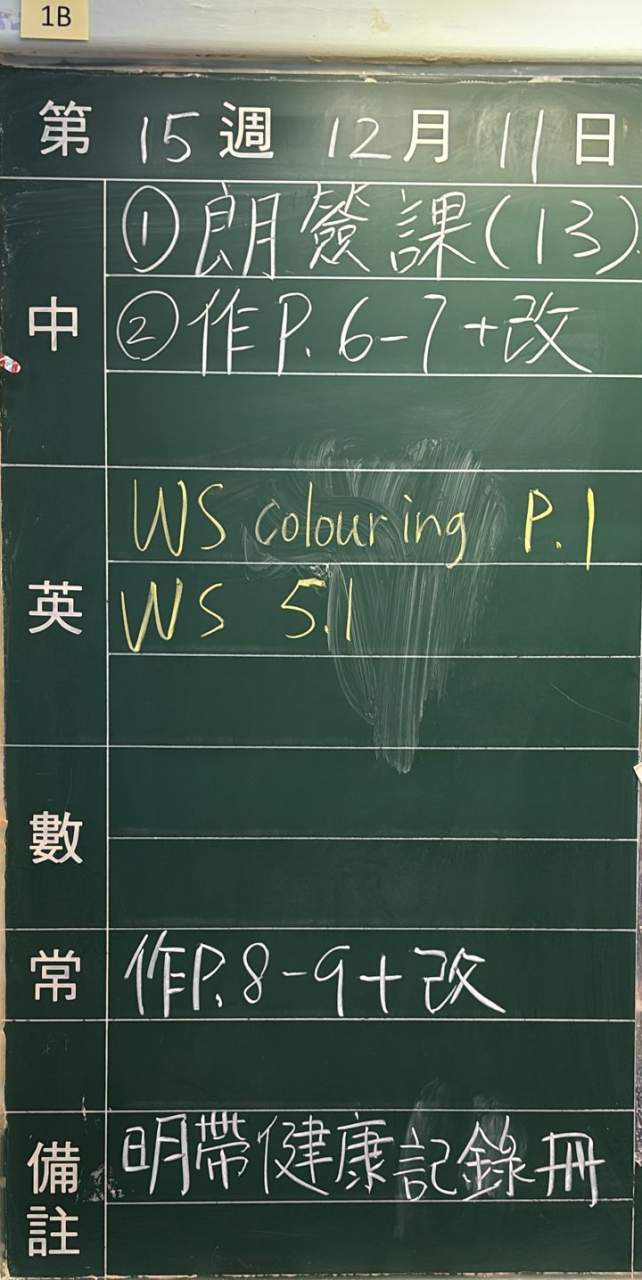 1B
第 15 週 12 月 11 日
中
①朗簽課(13)
②作P. 6-7+改
英
WS colouring P.1
WS 5.1
數
常
作P. 8-9+改
備註
明帶健康記錄冊